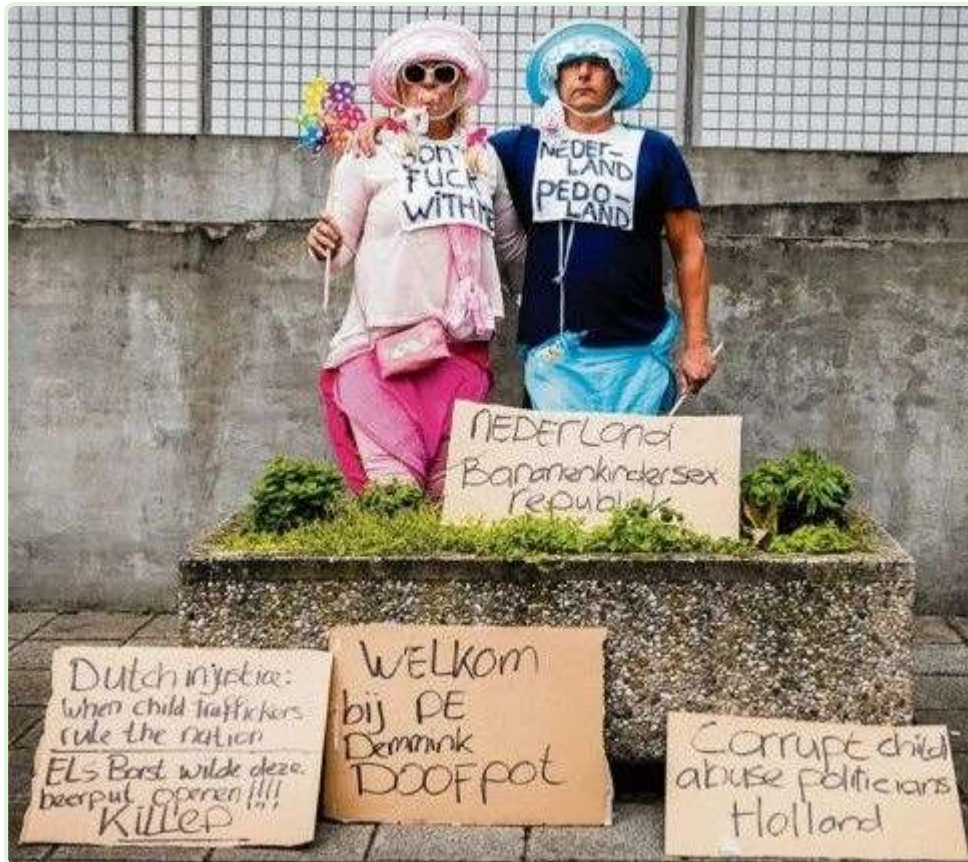 DON'T
FUCK
WITH ME
NEDER-
LAND
PEDO-
LAND
NEDERLand
Bananenkindersex
republiek
Dutch injustice:
when child traffickers
rule the nation
ELs Borst wilde deze
beerput openen!!!!
Killed
WELKOM
bij DE
Demmink
DOOFpot
Corrupt child
abuse politicians
Holland